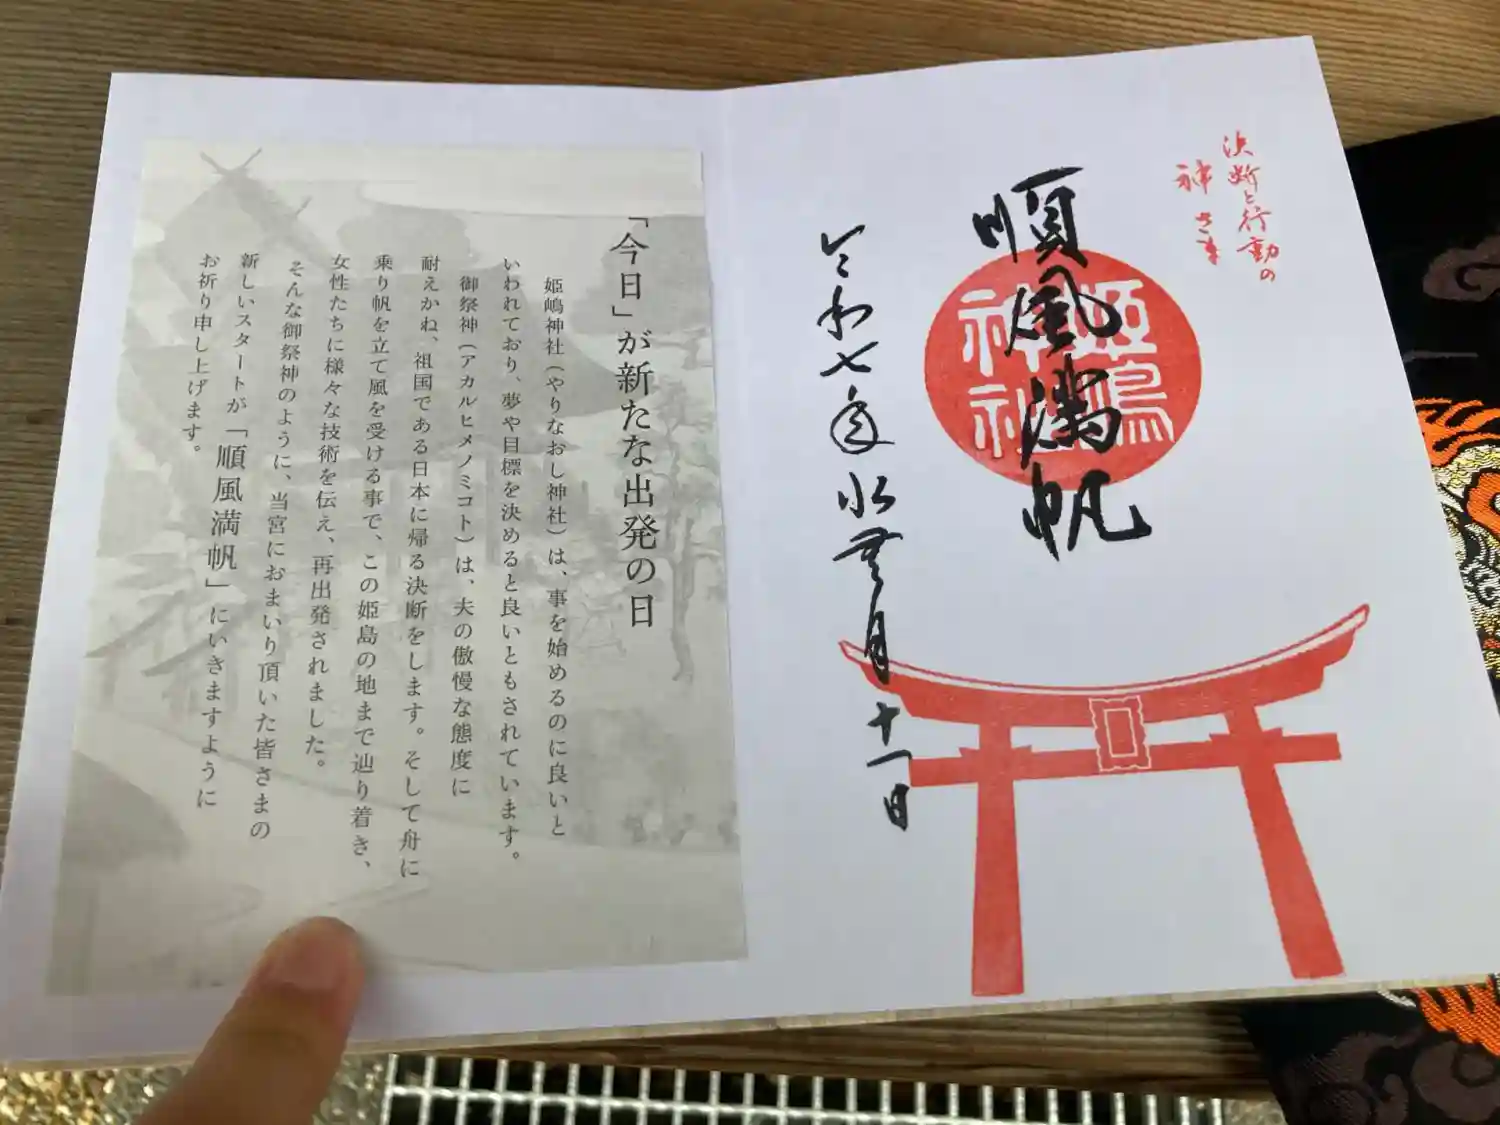 決断と行動の
神さま
順風満帆
姫嶋
神社
令和七年水無月十一日
「今日」が新たな出発の日
姫嶋神社（やりなおし神社）は、事を始めるのに良いと
いわれており、夢や目標を決めると良いともされています。
御祭神（アカルヒメノミコト）は、夫の傲慢な態度に
耐えかね、祖国である日本に帰る決断をします。そして舟に
乗り帆を立て風を受ける事で、この姫島の地まで辿り着き、
女性たちに様々な技術を伝え、再出発されました。
そんな御祭神のように、当宮におまいり頂いた皆さまの
新しいスタートが「順風満帆」にいきますように
お祈り申し上げます。